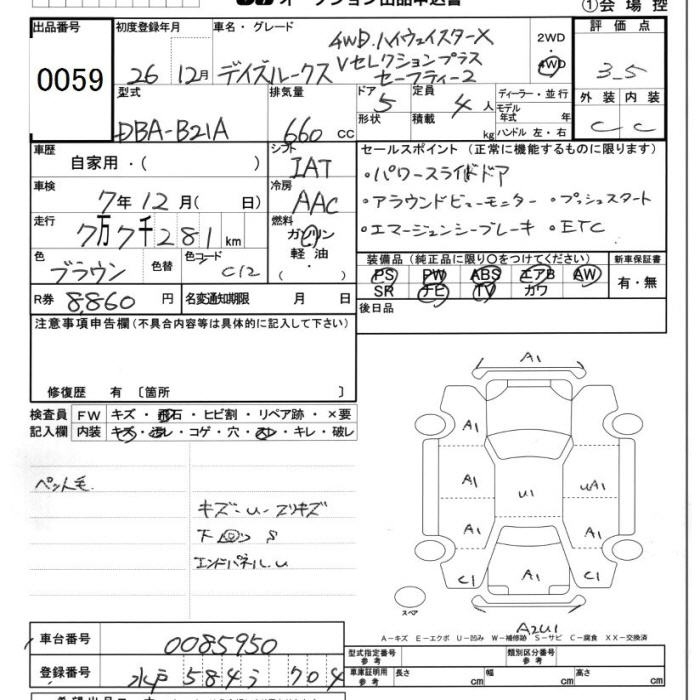 オークション出品申込書
①会場控
出品番号 0059
初度登録年月 26 12月
車名・グレード デイズルークス 4WD.ハイウェイスターX Vセレクションプラス セーフティー2
2WD・4WD
評価点 3.5
外装 C 内装 C
型式 DBA-B21A
排気量 660 cc
ドア 5 形状
定員 4人 積載 kg
ディーラー・並行
モデル年式 年
ハンドル 左・右
車歴 自家用・( )
シフト IAT
車検 7年12月( 日)
冷房 AAC
走行 7万7千281 km
燃料 ガソリン 軽油・( )
色 ブラウン 色替 色コード C12
R券 8,860円 名変通知期限 月 日
セールスポイント(正常に機能するものに限ります)
・パワースライドドア
・アラウンドビューモニター ・プッシュスタート
・エマージェンシーブレーキ ・ETC
装備品(純正品に限り○をつけてください) 新車保証書
PS PW ABS エアB AW 有・無
SR ナビ TV カワ
後日品
注意事項申告欄(不具合内容等は具体的に記入して下さい)
修復歴 有 〔箇所 〕
検査員記入欄
FW キズ・飛石・ヒビ割・リペア跡・×要
内装 キズ・汚レ・コゲ・穴・スレ・キレ・破レ
ペット毛
キズ・U・スリキズ
下 S
エンドパネル.U
A1
A1 A1 A1 C1
U1
A1
UA1 A1 C1
スペア
A2U1
A−キズ E−エクボ U−凹み W−補修跡 S−サビ C−腐食 XX−交換済
車台番号 0085950
登録番号 水戸 584 704
型式指定番号 参考 類別区分番号 参考
車庫証明用 参考 長さ cm 幅 cm 高さ cm